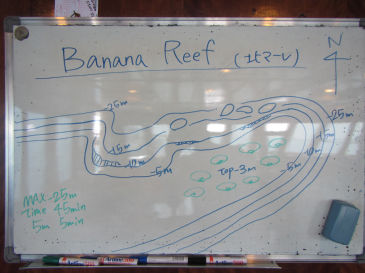 Banana Reef (北マーレ)
N
-25m
-25m
-15m
-10m
-5m
-15m
-10m
-5m
Top-3m
MAX -25m
time 45min
5m 5min